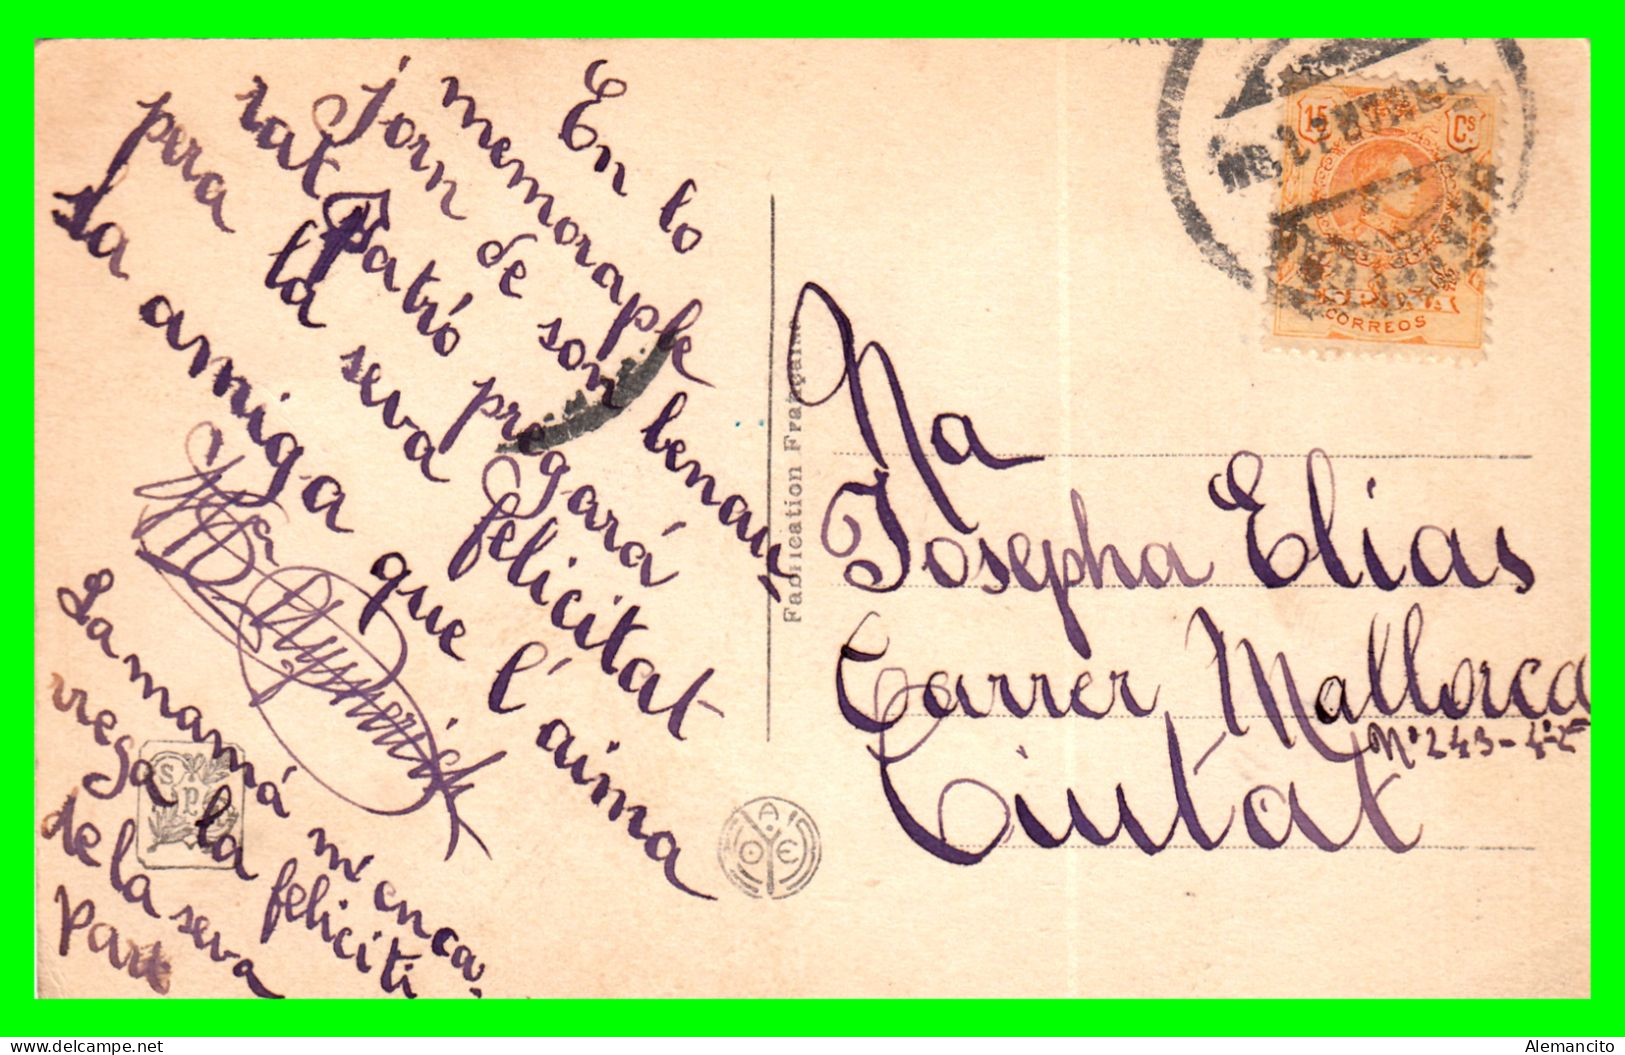 En lo
memoraple
jorn de son benau,
rat Patró pregará
pera la seva felicitat
sa amiga que l'aima
La mamá m'enca-
rrega la feliciti
de la seva
part
Fabrication Française
S P
A O E
15 Cs
CORREOS
Na
Josepha Elias
Carrer Mallorca
Nº 243-4º-2ª
Ciutat
Alemancito